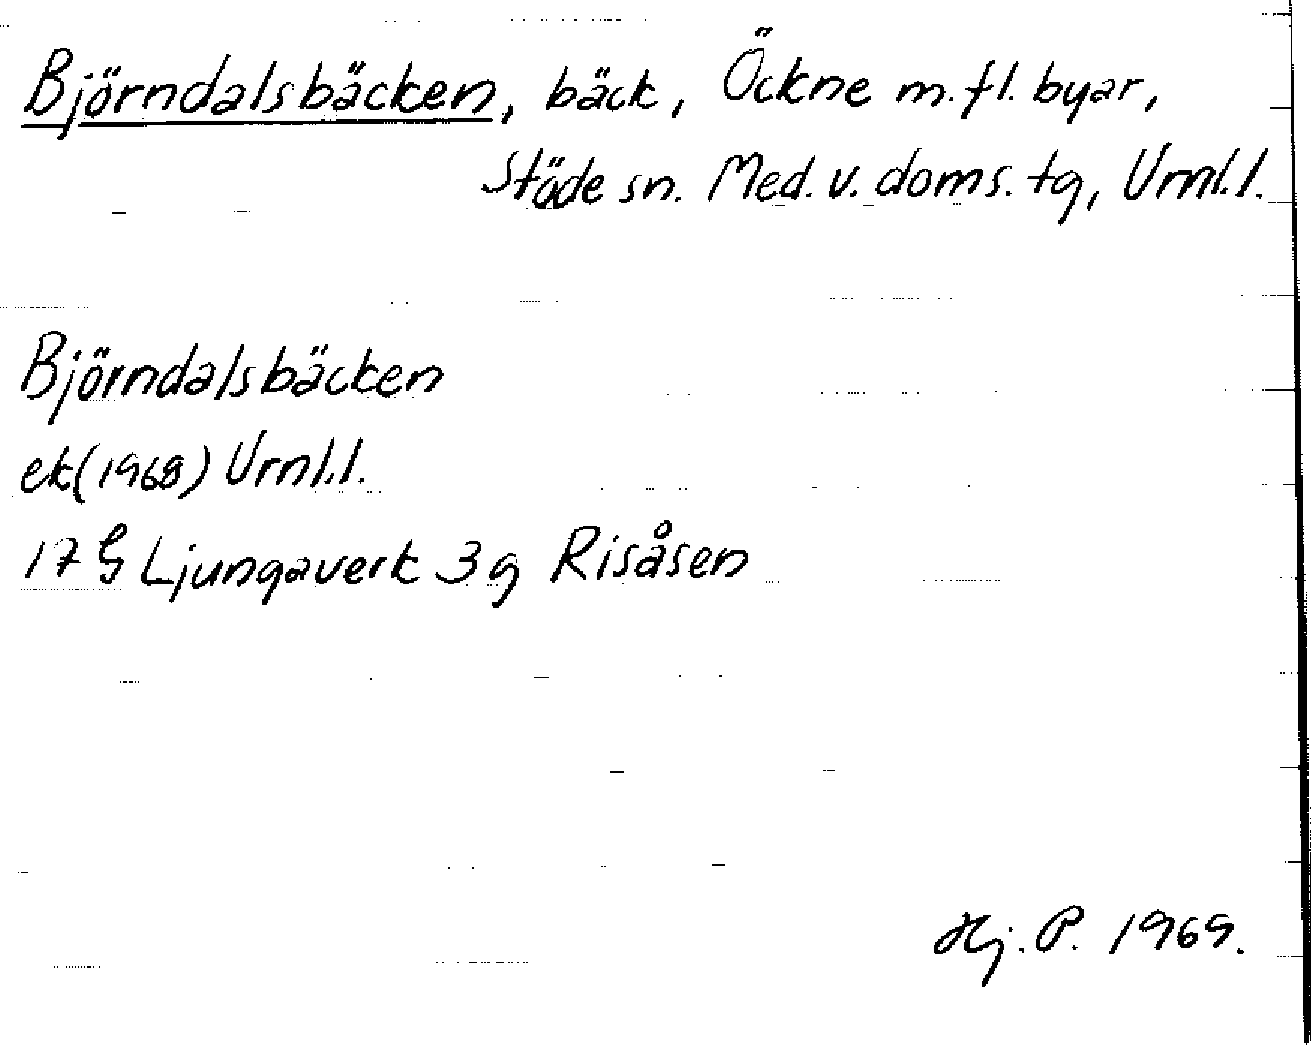 Björndalsbäcken, bäck, Öckne m.fl. byar,
Stöde sn. Med. v. doms. tg, Vrnl. l.
Björndalsbäcken
ek (1968) Vrnl. l.
17 G Ljungaverk 3 g Risåsen
Hj. P. 1969.